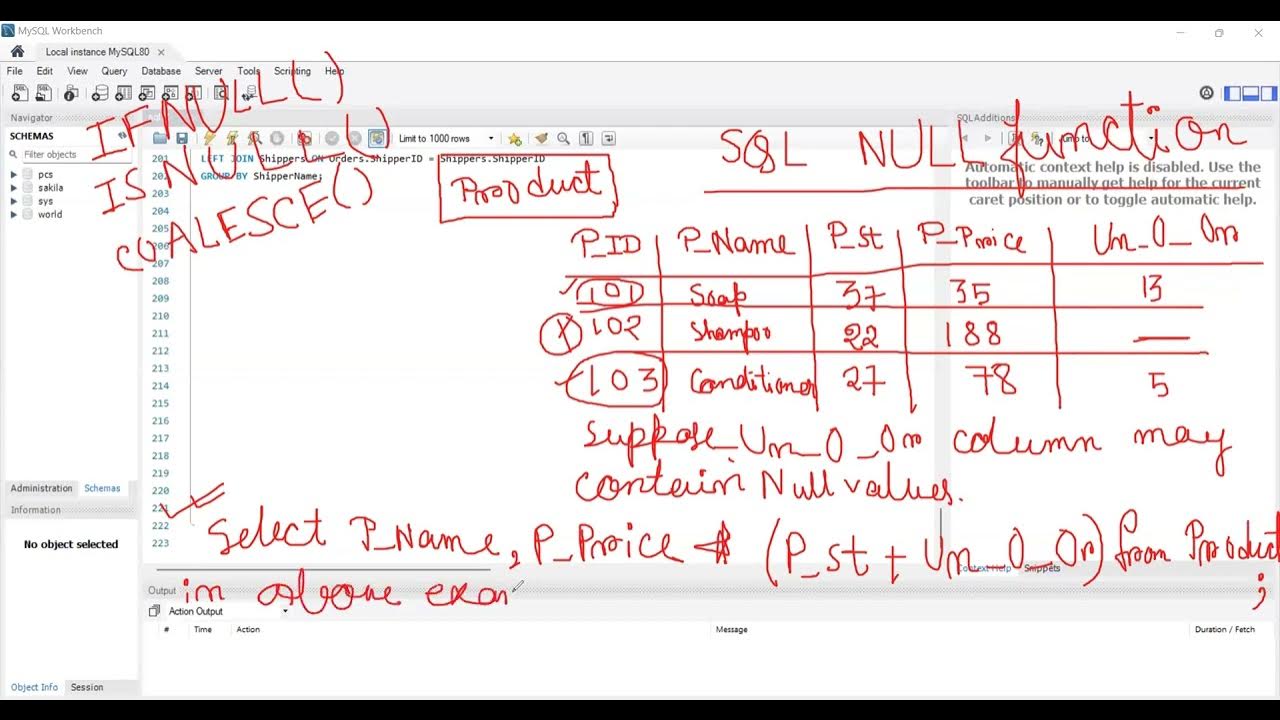 MySQL Workbench
Local instance MySQL80
File Edit View Query Database Server Tools Scripting Help
Navigator
SCHEMAS
Filter objects
pcs
sakila
sys
world
Administration Schemas
Information
No object selected
Object Info Session
IFNULL()
ISNULL()
COALESCE()
Limit to 1000 rows
201 LEFT JOIN Shippers ON Orders.ShipperID = Shippers.ShipperID
202 GROUP BY ShipperName;
203
204
205
206
207
208
209
210
211
212
213
214
215
216
217
218
219
220
221
222
223
SQLAdditions
Jump to
Automatic context help is disabled. Use the
toolbar to manually get help for the current
caret position or to toggle automatic help.
Context Help Snippets
SQL NULL function
Product
P_ID P_Name P_st P_Price Un_O_Or
101 Soap 37 35 13
102 Shampoo 22 188 —
103 Conditioner 27 78 5
Suppose Un_O_Or column may
contain Null values.
Select P_Name, P_Price * (P_st + Un_O_Or) from Product
;
in above exam
Output
Action Output
# Time Action Message Duration / Fetch